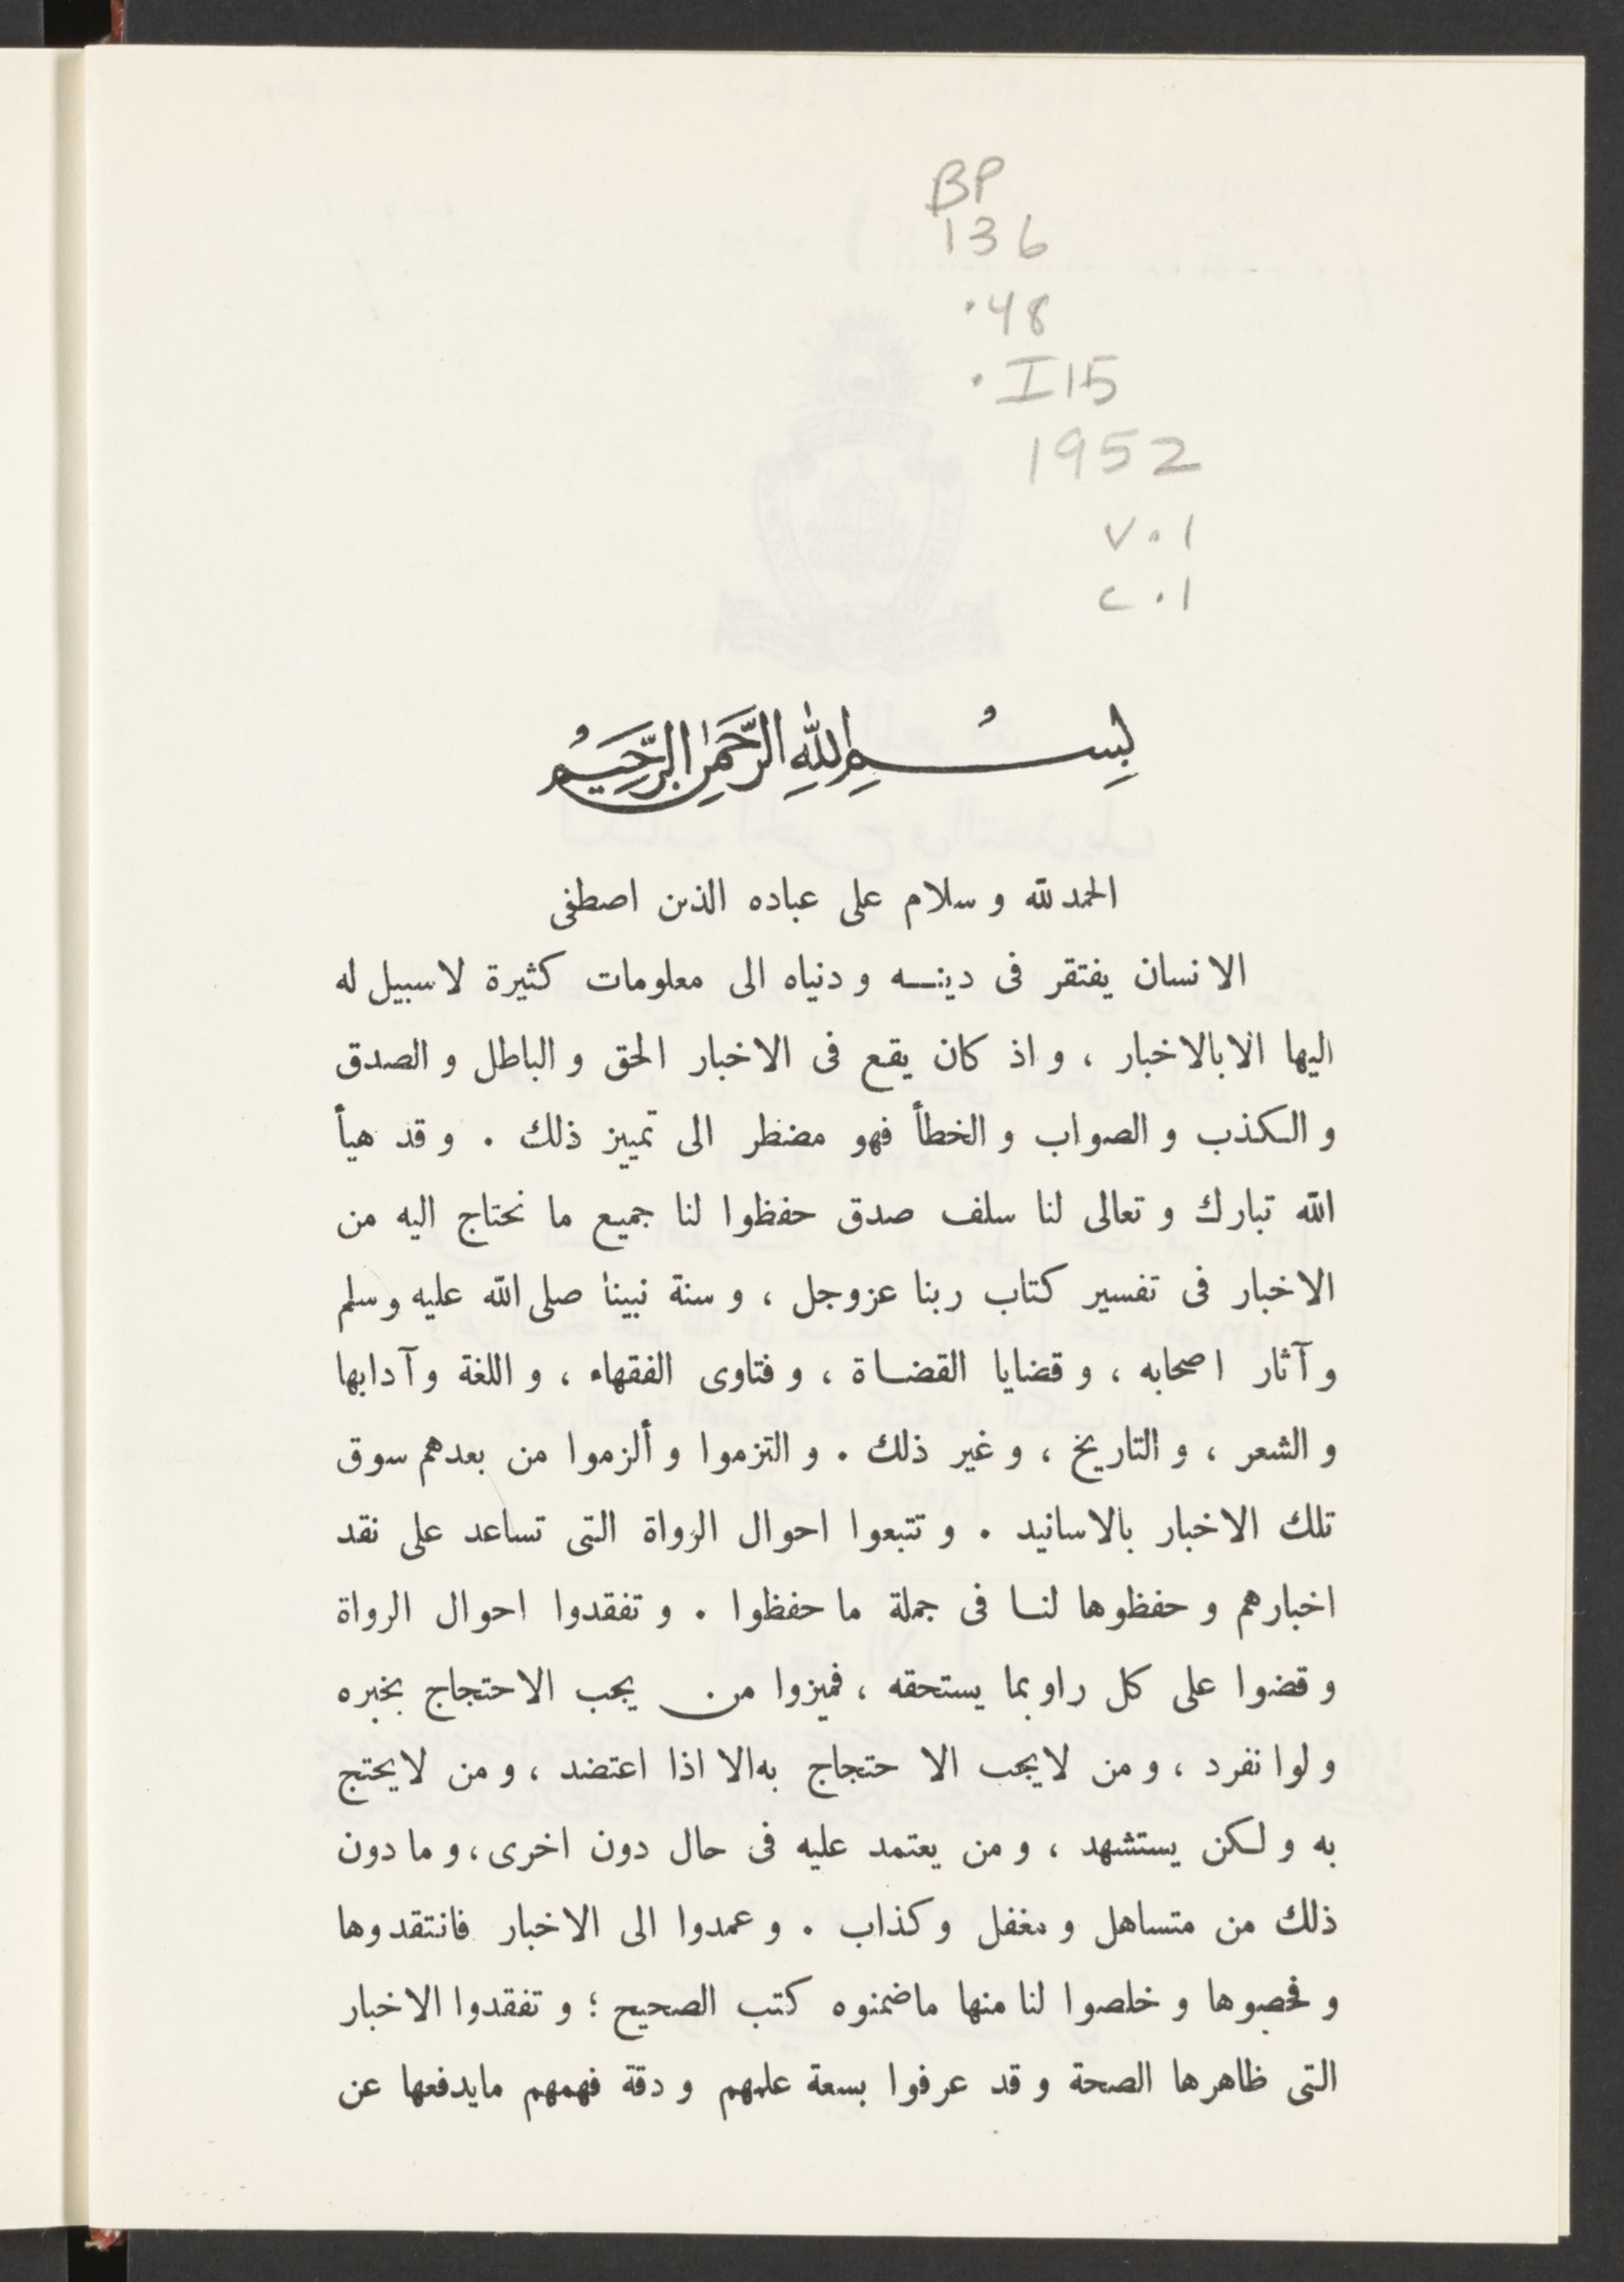 BP
136
.48
.I15
1952
v.1
c.1
بِسْمِ اللهِ الرَّحْمٰنِ الرَّحِيْمِ
الحمد لله و سلام على عباده الذين اصطفى
الانسان يفتقر فى دينـــه و دنياه الى معلومات كثيرة لا سبيل له
اليها الا بالاخبار ، و اذ كان يقع فى الاخبار الحق و الباطل و الصدق
و الكذب و الصواب و الخطأ فهو مضطر الى تمييز ذلك . و قد هيأ
الله تبارك و تعالى لنا سلف صدق حفظوا لنا جميع ما نحتاج اليه من
الاخبار فى تفسير كتاب ربنا عزوجل ، و سنة نبينا صلى الله عليه وسلم
و آثار اصحابه ، و قضايا القضـاة ، و فتاوى الفقهاء ، و اللغة و آدابها
و الشعر ، و التاريخ ، و غير ذلك . و التزموا و ألزموا من بعدهم سوق
تلك الاخبار بالاسانيد . و تتبعوا احوال الرواة التى تساعد على نقد
اخبارهم و حفظوها لنـا فى جملة ما حفظوا . و تفقدوا احوال الرواة
و قضوا على كل راو بما يستحقه ، فميزوا من يجب الاحتجاج بخبره
و لو انفرد ، و من لا يجب الا حتجاج به الا اذا اعتضد ، و من لا يحتج
به و لكن يستشهد ، و من يعتمد عليه فى حال دون اخرى، و ما دون
ذلك من متساهل و مغفل و كذاب . و عمدوا الى الاخبار فانتقدوها
و فحصوها و خلصوا لنا منها ما ضمنوه كتب الصحيح ؛ و تفقدوا الاخبار
التى ظاهرها الصحة و قد عرفوا بسعة علمهم و دقة فهمهم ما يدفعها عن